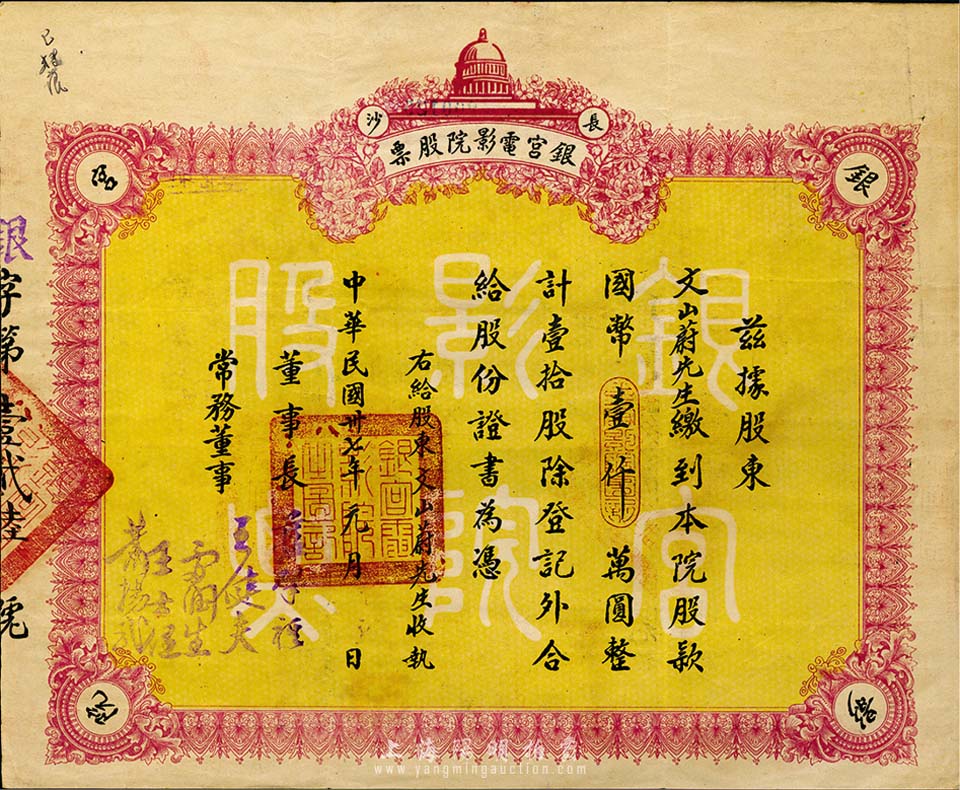 長沙
銀宮電影院股票
銀
宮
茲據股東
文山蔚先生繳到本院股款
國幣壹仟萬圓整
計壹拾股除登記外合
給股份證書為憑
右給股東文山蔚先生收執
中華民國卅七年元月 日
董事長
常務董事
王健夫
銀字第壹貳陸號
銀宮
影院
股票
上海陽明拍賣
www.yangmingauction.com